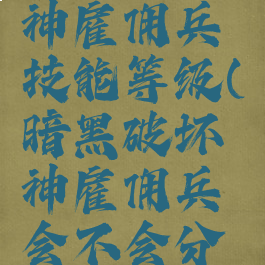 神雇佣兵
技能等级(
暗黑破坏
神雇佣兵
会不会分